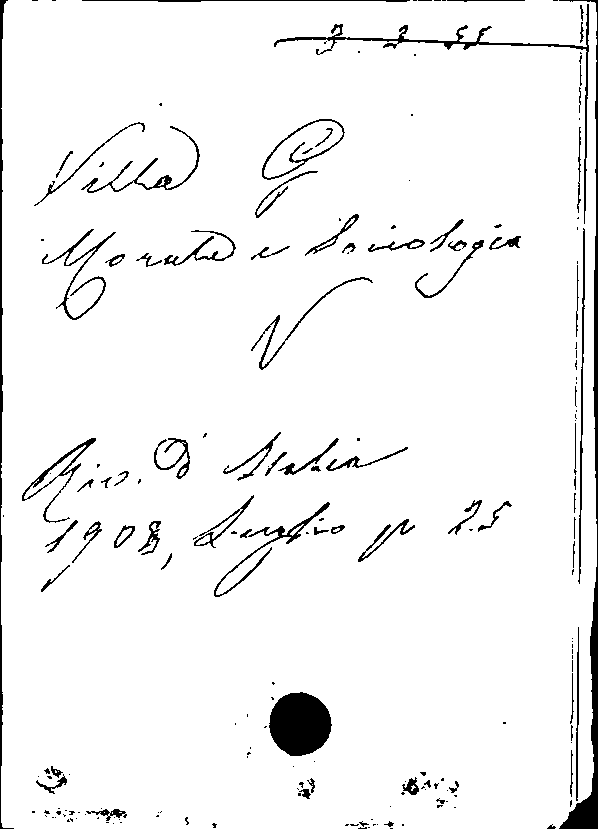 3. 2. 55
Villa G
Morale e Sociologia
V
Riv. D'Italia
1908, Luglio p 25